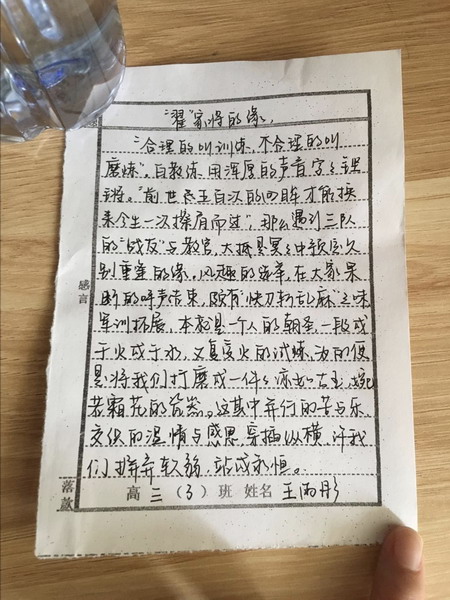 "翟"家将的缘。
"合理的叫训练,不合理的叫
磨炼",白教练用浑厚的声音字字铿
锵。"前世五百次的回眸才能换
来今生一次擦肩而过",那么遇到三队
的"战友"与教官,大抵是冥冥中被久
别重逢的缘。风趣的
的呼声结束,颇有"快刀斩乱麻"之味
军训拓展,本就是一个人的朝圣,一段或
于火或于水,又复复火的试炼,为的便
是将我们打磨成一件
若霜花的瓷器。这其中并行的苦与乐,
交织的温情与感恩,穿插纵横,许我
们摒弃软弱,站成永恒。
感言
落款
高三(3)班 姓名 王雨彤